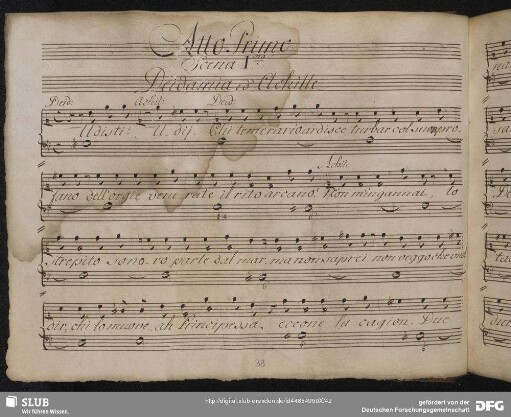 Atto Primo
Scena I
Deidamia ed Achille
Deid: Achil: Deid:
Udisti? Udij. Chi temerario ardisce turbar col suon pro
Achil:
fano dell'orgie venerate il rito arcano? Non m'ingannai, lo
strepito sonoro parte dal mar, ma non saprei non veggo
dir, chi lo muove. ah Principessa, eccone la cagion. Due
38
http://digital.slub-dresden.de/
SLUB
Wir führen Wissen.
gefördert von der
Deutschen Forschungsgemeinschaft
DFG